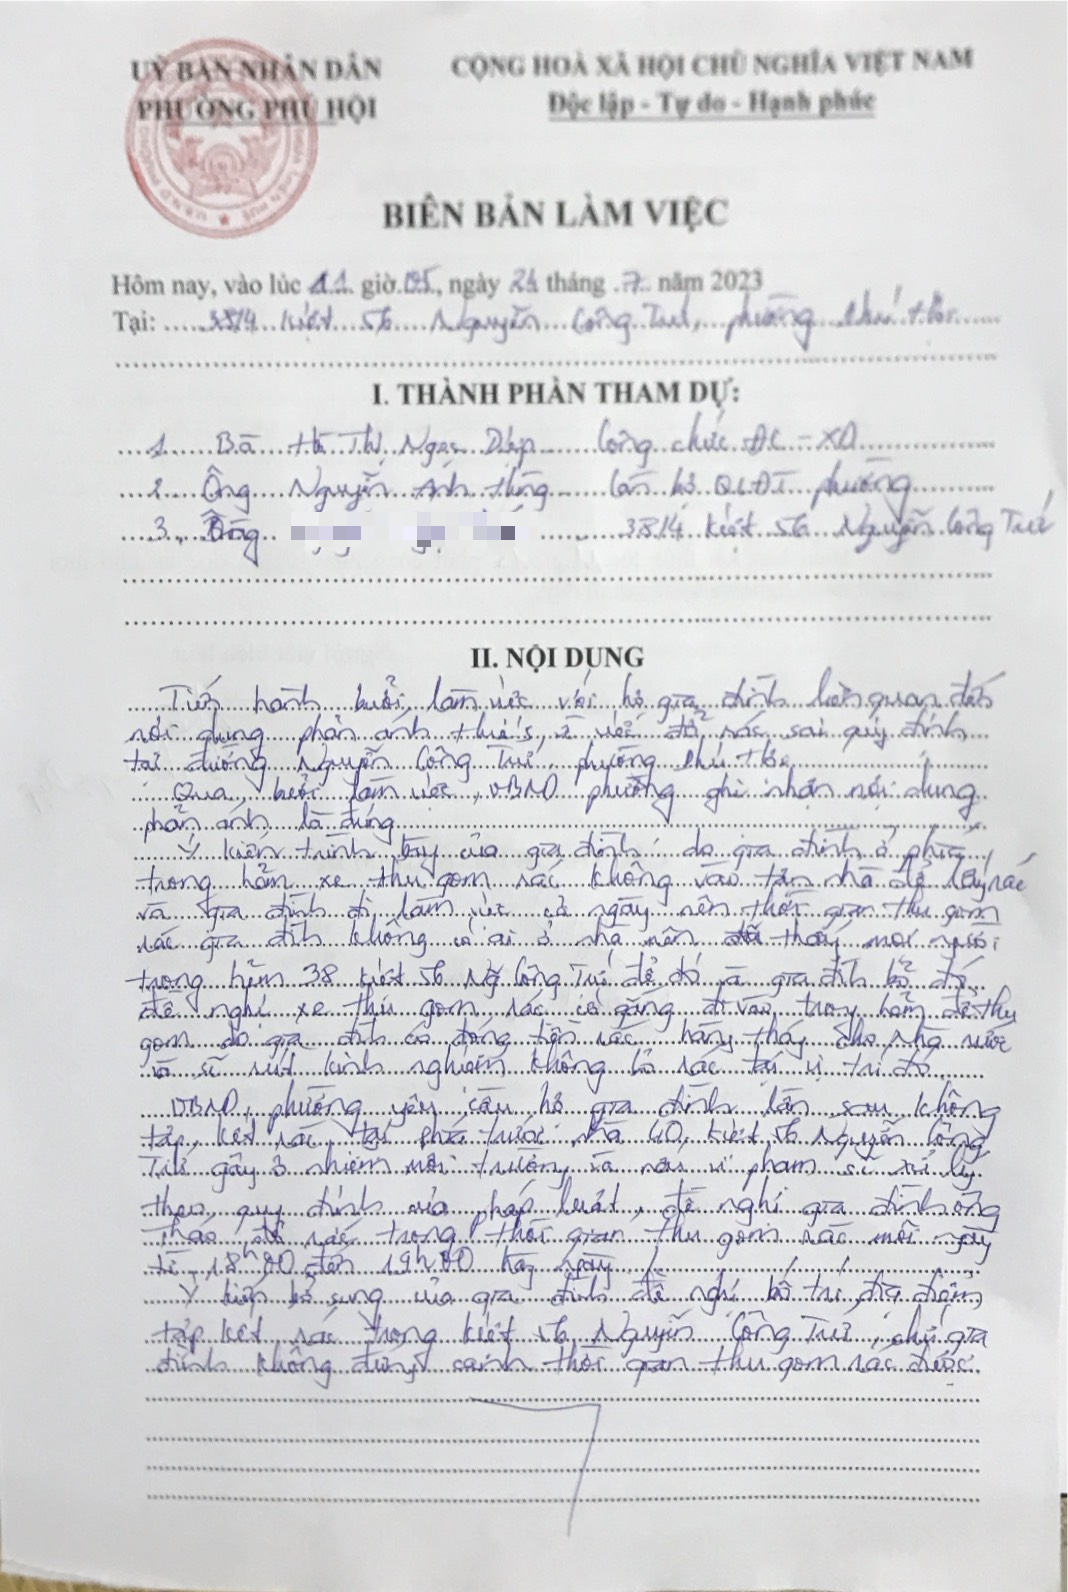 UỶ BAN NHÂN DÂN
PHƯỜNG PHÚ HỘI
CỘNG HOÀ XÃ HỘI CHỦ NGHĨA VIỆT NAM
Độc lập - Tự do - Hạnh phúc
BIÊN BẢN LÀM VIỆC
Hôm nay, vào lúc 11 giờ 05, ngày 21 tháng 7 năm 2023
Tại: 38/4 kiệt 56 Nguyễn Công Trứ, phường Phú Hội
I. THÀNH PHẦN THAM DỰ:
1. Bà Hồ Thị Ngọc Diệp Công chức ĐC - XD
2. Ông Nguyễn Anh cán bộ QLĐT phường
3. Ông 38/4 kiệt 56 Nguyễn Công Trứ
II. NỘI DUNG
Tiến hành buổi làm việc với hộ gia đình liên quan đến
nội dung phản ánh về việc đổ rác sai quy định
tại đường Nguyễn Công Trứ, phường Phú Hội
Qua buổi làm việc, UBND phường ghi nhận nội dung
phản ánh là đúng
Ý kiến trình bày của gia đình: do gia đình ở phía
trong hẻm xe thu gom rác không vào tận nhà để lấy rác
và gia đình đi làm việc cả ngày nên thời gian thu gom
rác gia đình không có ai ở nhà nên thấy mọi người
trong hẻm 38 kiệt 56 Ng Công Trứ để đó và gia đình bỏ đó
đề nghị xe thu gom rác cố gắng đi vào trong hẻm để thu
gom do gia đình có đóng tiền rác hàng tháng cho nhà nước
và sẽ rút kinh nghiệm không bỏ rác tại vị trí đó
UBND phường yêu cầu hộ gia đình lần sau không
tập kết rác tại phía trước nhà 40 kiệt 56 Nguyễn Công
Trứ gây ô nhiễm môi trường và nếu vi phạm sẽ xử lý
theo quy định của pháp luật, đề nghị gia đình ông
đổ rác trong thời gian thu gom rác mỗi ngày
từ 18h00 đến 19h00 hàng ngày
Ý kiến bổ sung của gia đình đề nghị bố trí địa điểm
tập kết rác trong kiệt 56 Nguyễn Công Trứ, chứ gia
đình không đúng thời gian thu gom rác được